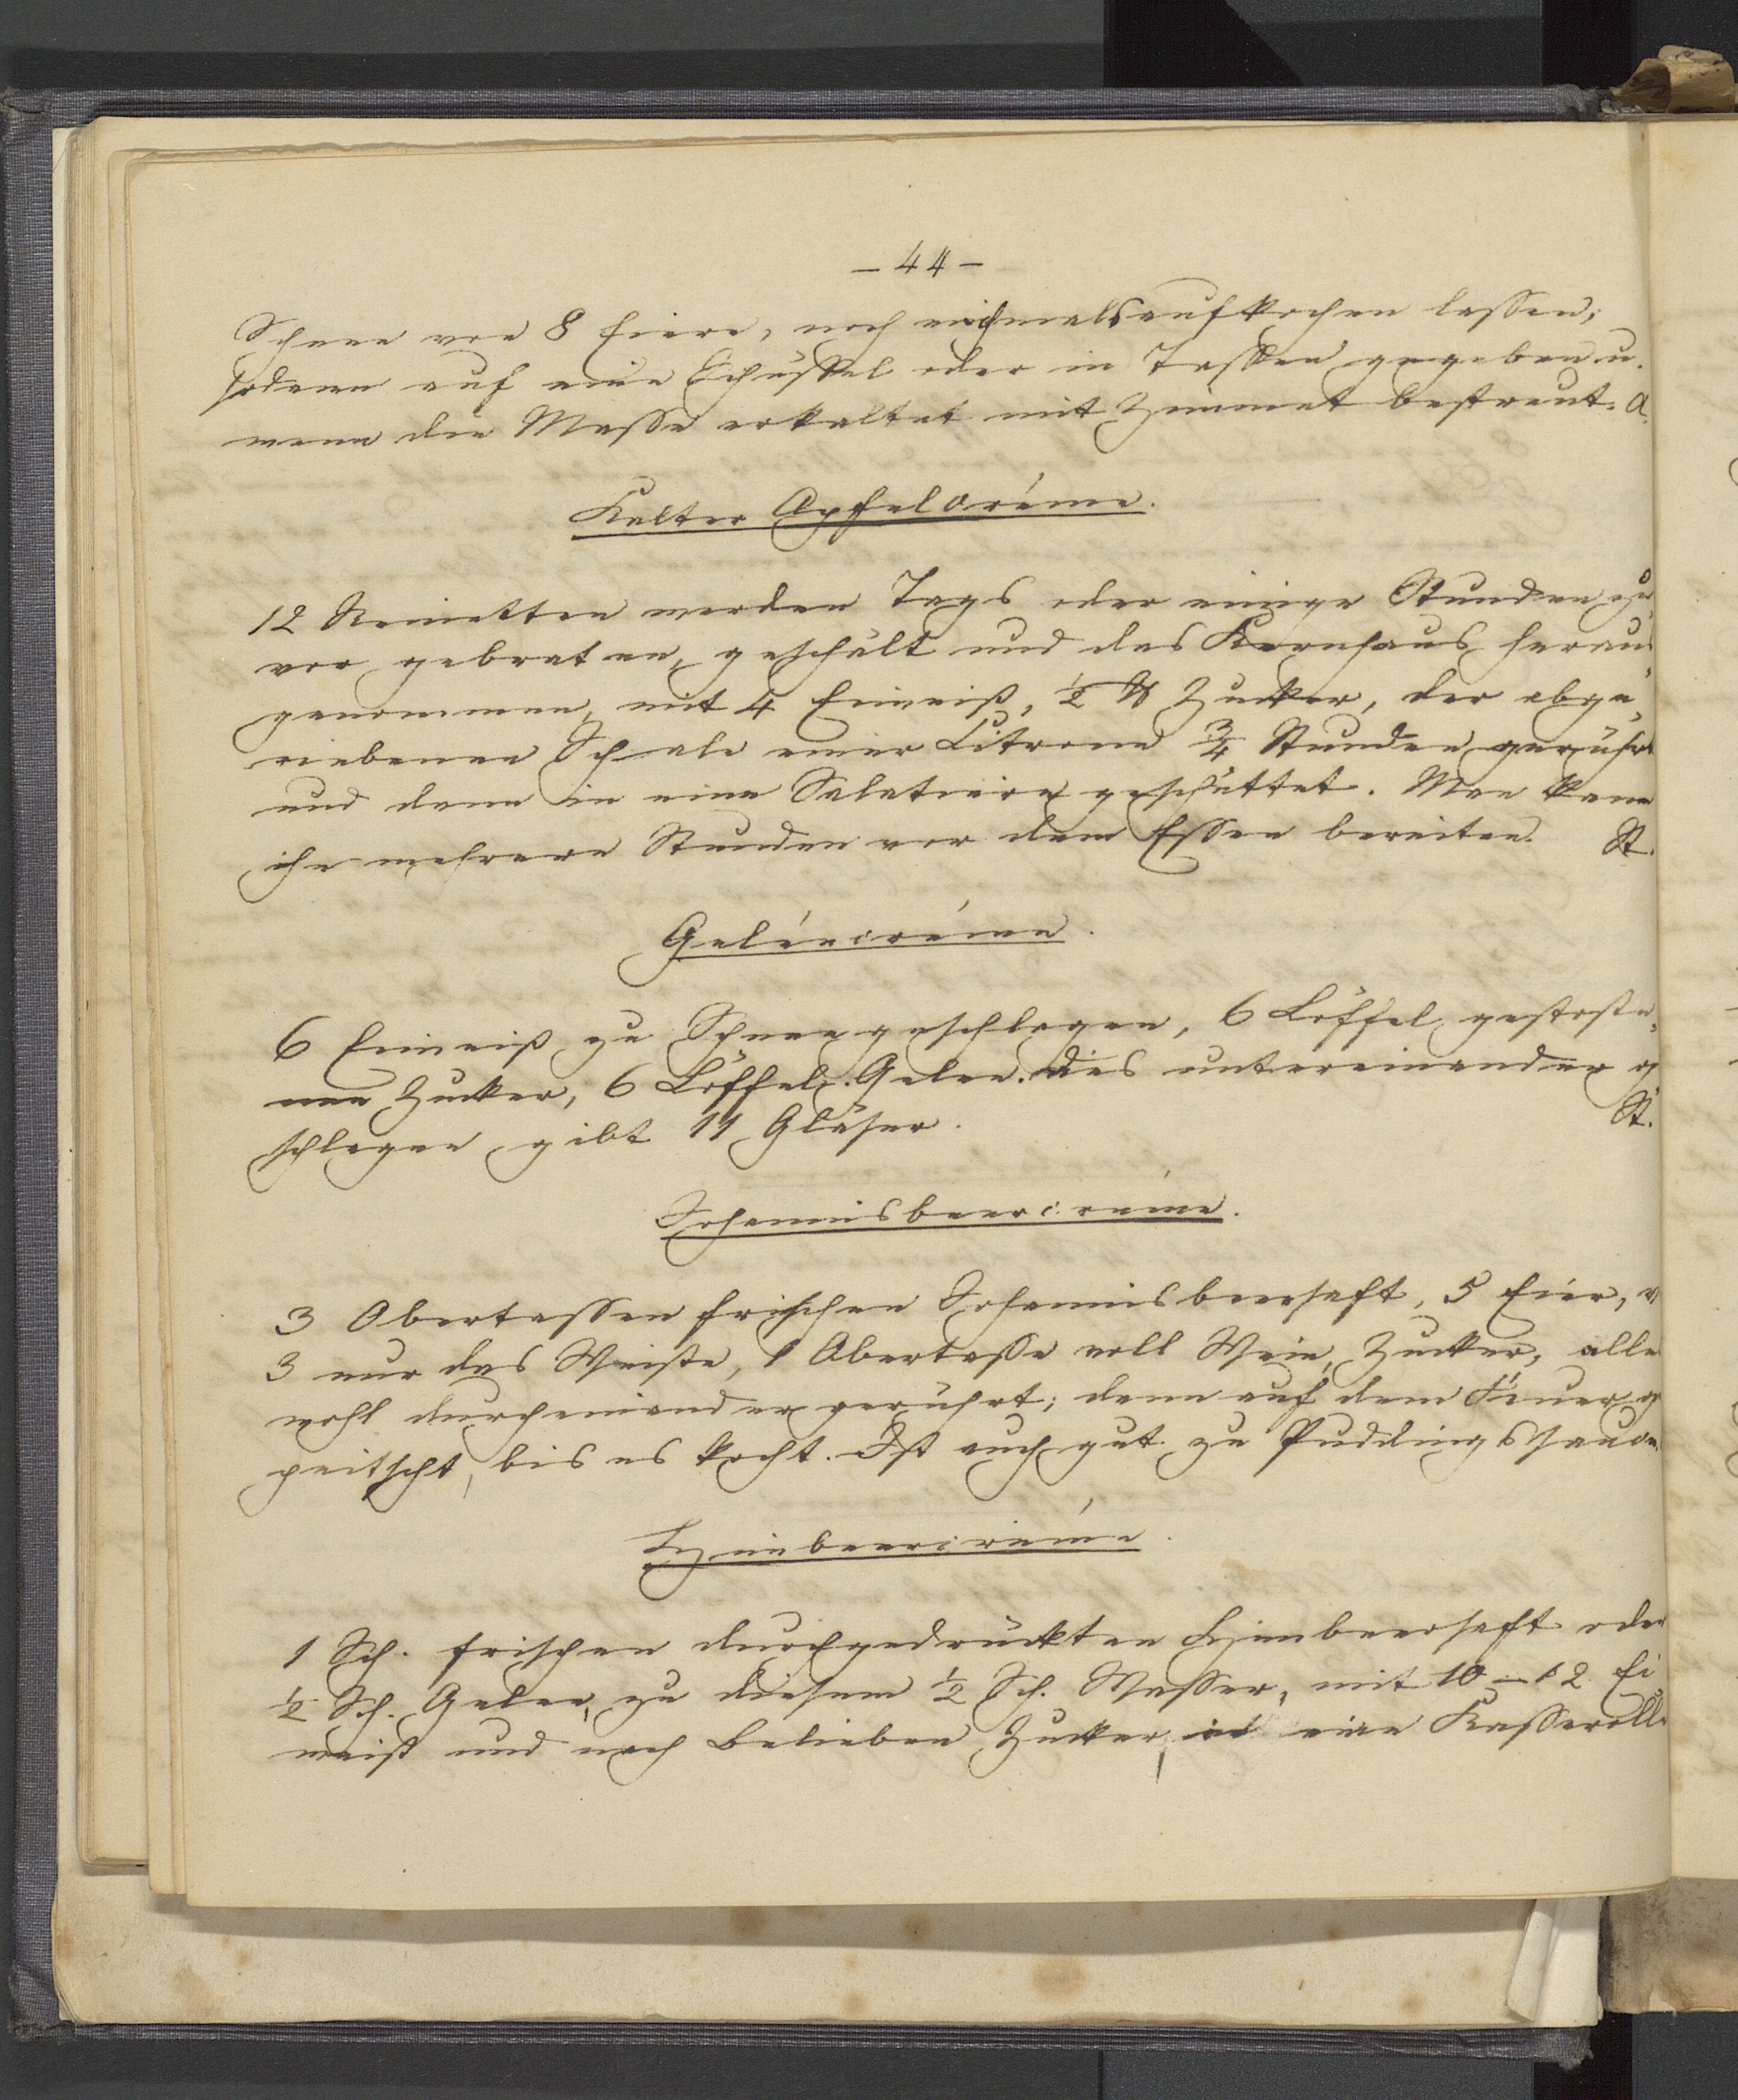 - 44 -
Schnee von 8 Eiern, noch einmals aufkochen lassen;
sodann auf eine Schüssel oder in Tassen gegeben u.
wenn die Masse erkaltet mit Zimmet bestreut. A.
Kalter Apfelcréme.
12 Reinetten werden Tags oder einige Stunden zu
vor gebraten, geschält und das Kernhaus heraus
genommen, mit 4 Eiweiß, ½ ℔ Zucker, der abge„
riebenen Schale einer Citrone ¾ Stunden gerührt
und dann in eine Salatiere geschüttet. Man kann
ihn mehrere Stunden vor dem Essen bereiten. St.
Geléecréme.
6 Eiweiß zu Schnee geschlagen, 6 Löffel gestoße„
nen Zucker, 6 Löffel Gelee. dies untereinander g
schlagen gibt 11 Gläser. St.
Johannisbeercréme.
3 Obertassen frischen Johannisbeersaft, 5 Eier, v
3 nur das Weiße, 1 Obertasse voll Wein, Zucker, alle
wohl durcheinander gerührt; dann auf dem Feuer g
peitscht, bis es kocht. Ist auch gut zu Puddingssauce.
Himbeercréme.
1 Sch. frischen durchgedrückten Himbeersaft oder
½ Sch. Gelee, zu diesem ½ Sch. Wasser, mit 10 - 12 Ei„
weiß und nach Belieben Zucker, in eine Kasseroll